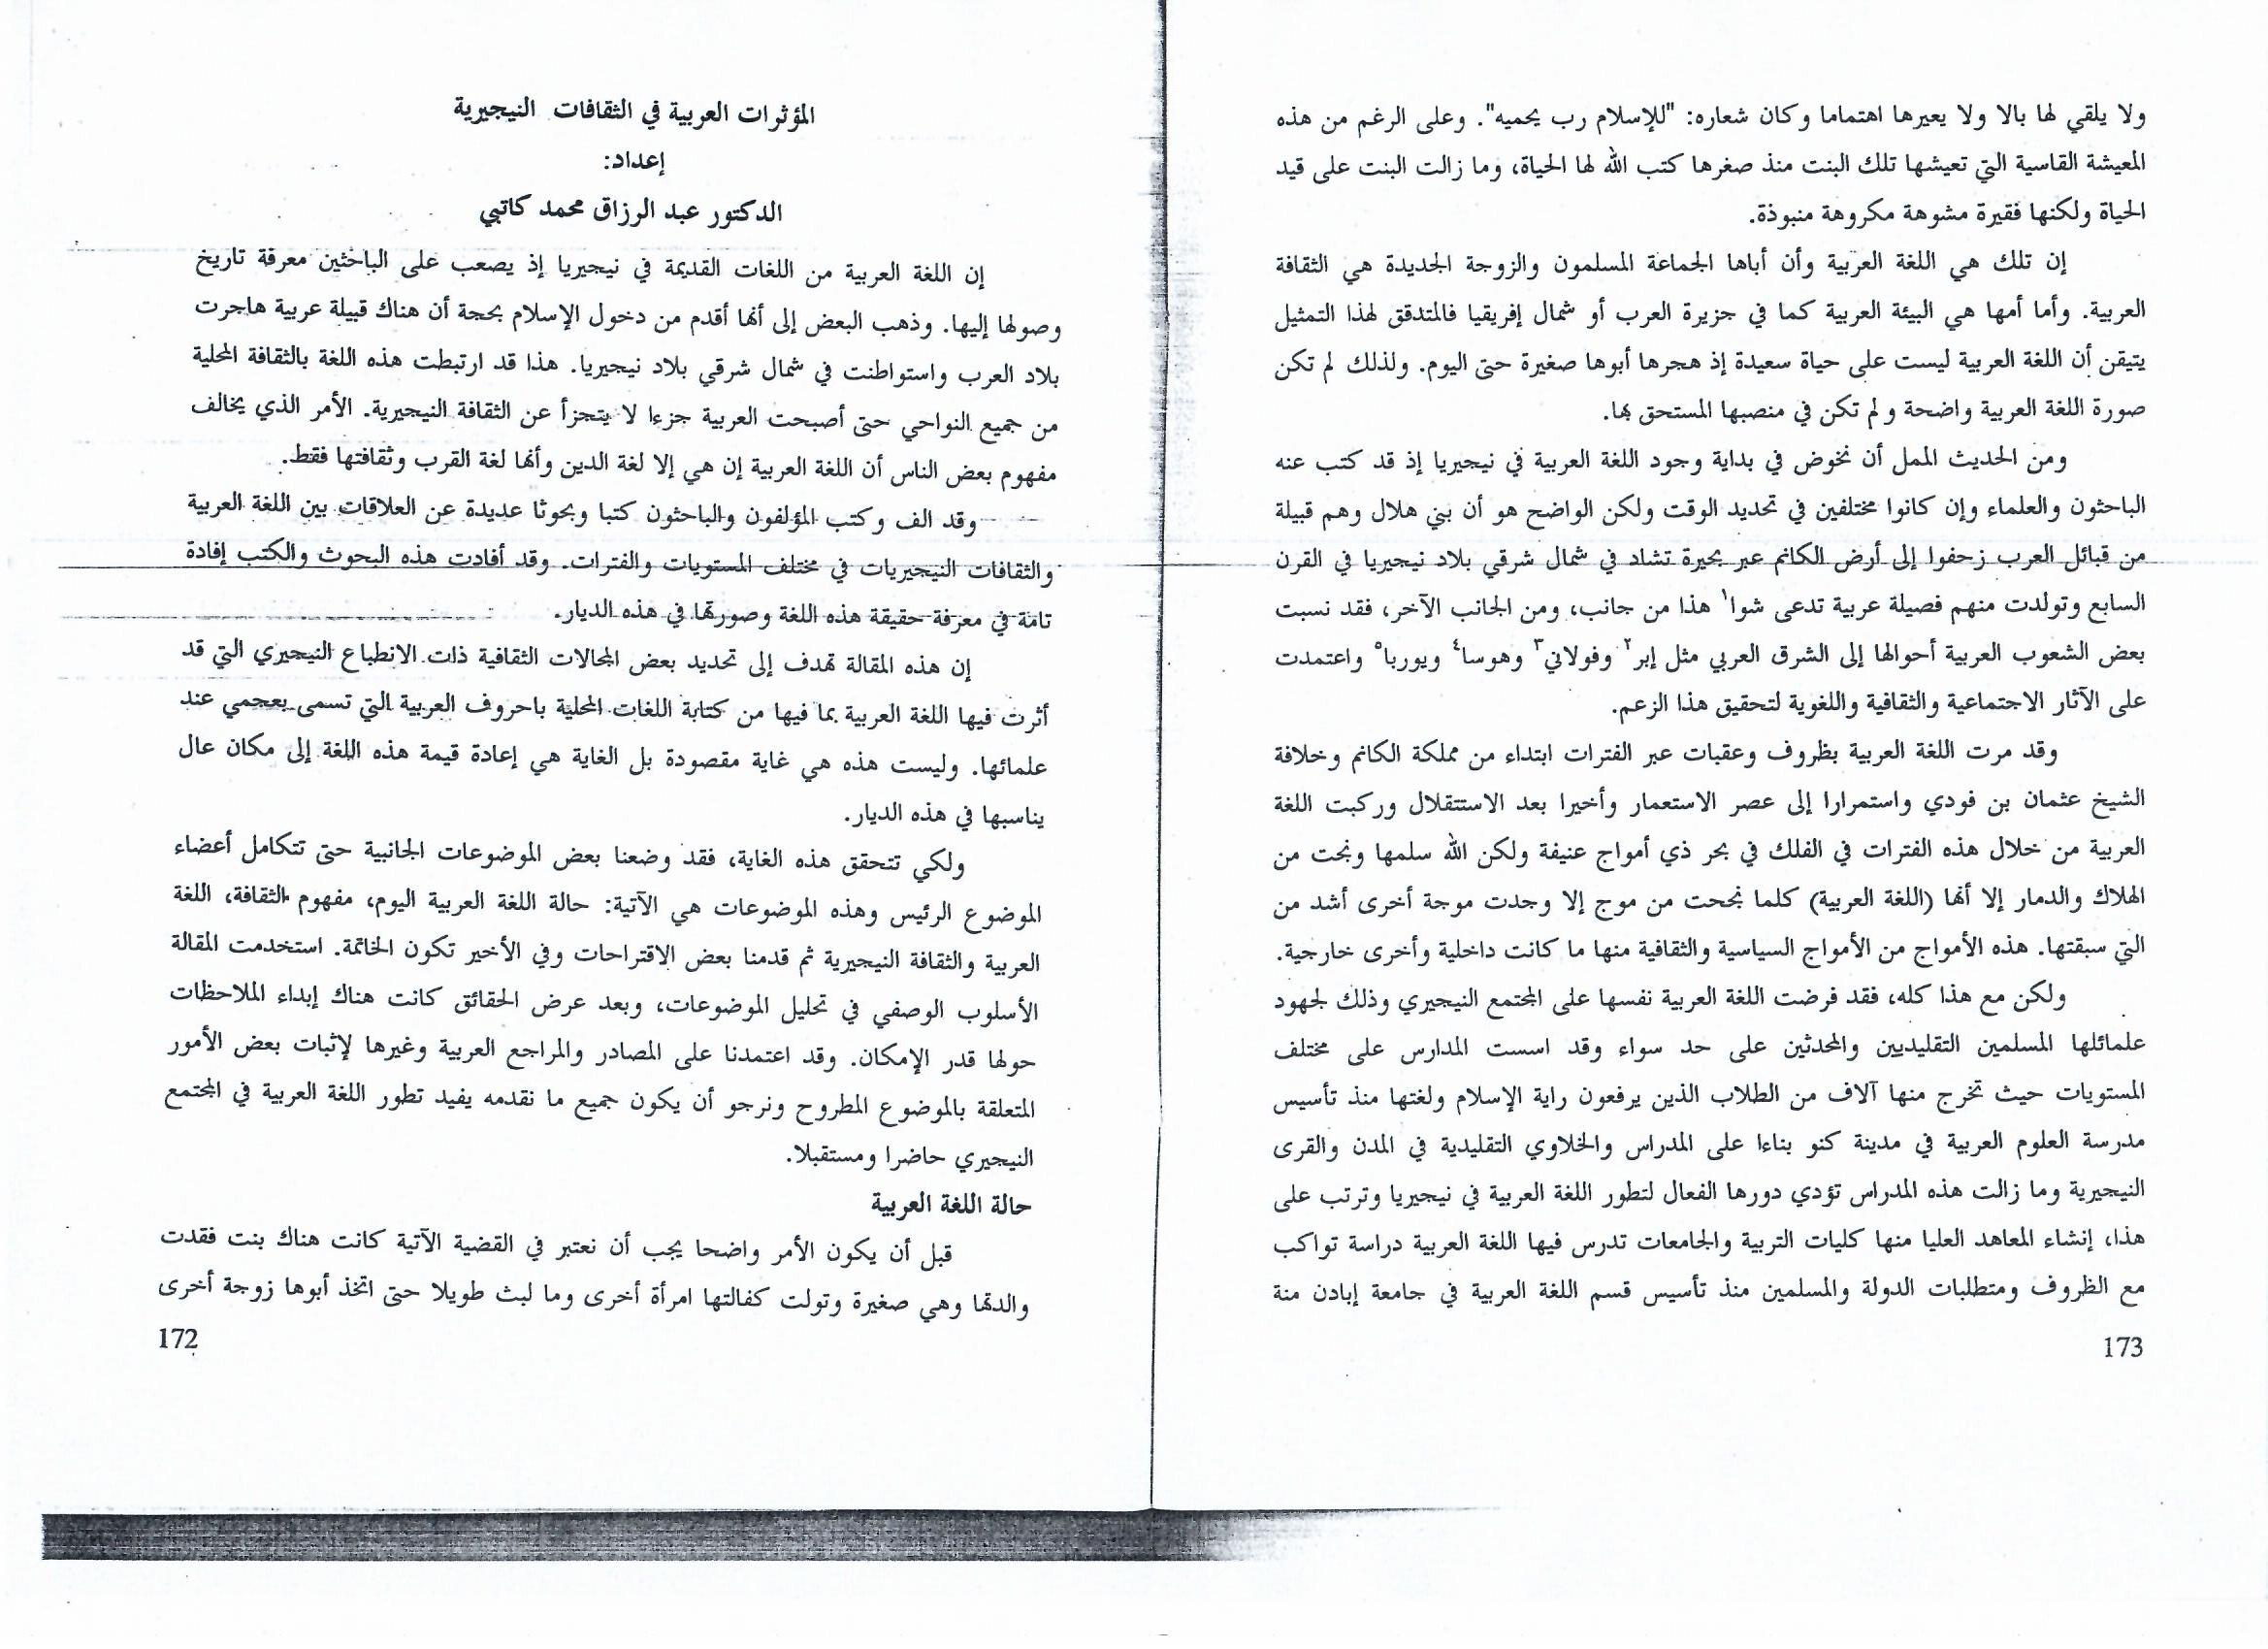 المؤثرات العربية في الثقافات النيجيرية
إعداد:
الدكتور عبد الرزاق محمد كاتبي
إن اللغة العربية من اللغات القديمة في نيجيريا إذ يصعب على الباحثين معرفة تاريخ
وصولها إليها. وذهب البعض إلى أنها أقدم من دخول الإسلام بحجة أن هناك قبيلة عربية هاجرت
بلاد العرب واستواطنت في شمال شرقي بلاد نيجيريا. هذا قد ارتبطت هذه اللغة بالثقافة المحلية
من جميع النواحي حتى أصبحت العربية جزءا لا يتجزأ عن الثقافة النيجيرية. الأمر الذي يخالف
مفهوم بعض الناس أن اللغة العربية إن هي إلا لغة الدين وأنها لغة القرب وثقافتها فقط.
وقد الف وكتب المؤلفون والباحثون كتبا وبحوثا عديدة عن العلاقات بين اللغة العربية
والثقافات النيجيريات في مختلف المستويات والفترات. وقد أفادت هذه البحوث والكتب إفادة
تامة في معرفة حقيقة هذه اللغة وصورتها في هذه الديار.
إن هذه المقالة تهدف إلى تحديد بعض المجالات الثقافية ذات الانطباع النيجيري التي قد
أثرت فيها اللغة العربية بما فيها من كتابة اللغات المحلية باحروف العربية التي تسمى بعجمي عند
علمائها. وليست هذه هي غاية مقصودة بل الغاية هي إعادة قيمة هذه اللغة إلى مكان عال
يناسبها في هذه الديار.
ولكي تتحقق هذه الغاية، فقد وضعنا بعض الموضوعات الجانبية حتى تتكامل أعضاء
الموضوع الرئيس وهذه الموضوعات هي الآتية: حالة اللغة العربية اليوم، مفهوم الثقافة، اللغة
العربية والثقافة النيجيرية ثم قدمنا بعض الاقتراحات وفي الأخير تكون الخاتمة. استخدمت المقالة
الأسلوب الوصفي في تحليل الموضوعات، وبعد عرض الحقائق كانت هناك إبداء الملاحظات
حولها قدر الإمكان. وقد اعتمدنا على المصادر والمراجع العربية وغيرها لإثبات بعض الأمور
المتعلقة بالموضوع المطروح ونرجو أن يكون جميع ما نقدمه يفيد تطور اللغة العربية في المجتمع
النيجيري حاضرا ومستقبلا.
حالة اللغة العربية
قبل أن يكون الأمر واضحا يجب أن نعتبر في القضية الآتية كانت هناك بنت فقدت
والدتها وهي صغيرة وتولت كفالتها امرأة أخرى وما لبث طويلا حتى اتخذ أبوها زوجة أخرى
172
ولا يلقي لها بالا ولا يعيرها اهتماما وكان شعاره: "للإسلام رب يحميه". وعلى الرغم من هذه
المعيشة القاسية التي تعيشها تلك البنت منذ صغرها كتب الله لها الحياة، وما زالت البنت على قيد
الحياة ولكنها فقيرة مشوهة مكروهة منبوذة.
إن تلك هي اللغة العربية وأن أباها الجماعة المسلمون والزوجة الجديدة هي الثقافة
العربية. وأما أمها هي البيئة العربية كما في جزيرة العرب أو شمال إفريقيا فالمتدقق لهذا التمثيل
يتيقن أن اللغة العربية ليست على حياة سعيدة إذ هجرها أبوها صغيرة حتى اليوم. ولذلك لم تكن
صورة اللغة العربية واضحة ولم تكن في منصبها المستحق بها.
ومن الحديث الممل أن نخوض في بداية وجود اللغة العربية في نيجيريا إذ قد كتب عنه
الباحثون والعلماء وإن كانوا مختلفين في تحديد الوقت ولكن الواضح هو أن بني هلال وهم قبيلة
من قبائل العرب زحفوا إلى أرض الكانم عبر بحيرة تشاد في شمال شرقي بلاد نيجيريا في القرن
السابع وتولدت منهم فصيلة عربية تدعى شوا١ هذا من جانب، ومن الجانب الآخر، فقد نسبت
بعض الشعوب العربية أحوالها إلى الشرق العربي مثل إبر٢ وفولاني٣ وهوسا٤ ويوربا٥ واعتمدت
على الآثار الاجتماعية والثقافية واللغوية لتحقيق هذا الزعم.
وقد مرت اللغة العربية بظروف وعقبات عبر الفترات ابتداء من مملكة الكانم وخلافة
الشيخ عثمان بن فودي واستمرارا إلى عصر الاستعمار وأخيرا بعد الاستتقلال وركبت اللغة
العربية من خلال هذه الفترات في الفلك في بحر ذي أمواج عنيفة ولكن الله سلمها ونجت من
الهلاك والدمار إلا أنها (اللغة العربية) كلما نجحت من موج إلا وجدت موجة أخرى أشد من
التي سبقتها. هذه الأمواج من الأمواج السياسية والثقافية منها ما كانت داخلية وأخرى خارجية.
ولكن مع هذا كله، فقد فرضت اللغة العربية نفسها على المجتمع النيجيري وذلك لجهود
علمائلها المسلمين التقليديين والمحدثين على حد سواء وقد اسست المدارس على مختلف
المستويات حيث تخرج منها آلاف من الطلاب الذين يرفعون راية الإسلام ولغتها منذ تأسيس
مدرسة العلوم العربية في مدينة كنو بناءا على المدراس والخلاوي التقليدية في المدن والقرى
النيجيرية وما زالت هذه المدراس تؤدي دورها الفعال لتطور اللغة العربية في نيجيريا وترتب على
هذا، إنشاء المعاهد العليا منها كليات التربية والجامعات تدرس فيها اللغة العربية دراسة تواكب
مع الظروف ومتطلبات الدولة والمسلمين منذ تأسيس قسم اللغة العربية في جامعة إبادن منة
173